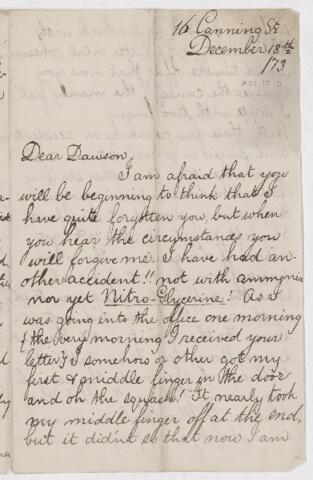 16 Canning St
December 18th
/73
ACC.1010
Dear Dawson,
I am afraid that you
will be beginning to think that I
have quite forgotten you, but when
you hear the circumstances you
will forgive me. I have had an-
other accident!! not with ammonia
nor yet Nitro-Glycerine! As I
was going into the office one morning
{the very morning I received your
letter} I somehow or other got my
first & middle finger in the door
and oh the squash! It nearly took
my middle finger off at the end,
but it didn't so that now I am